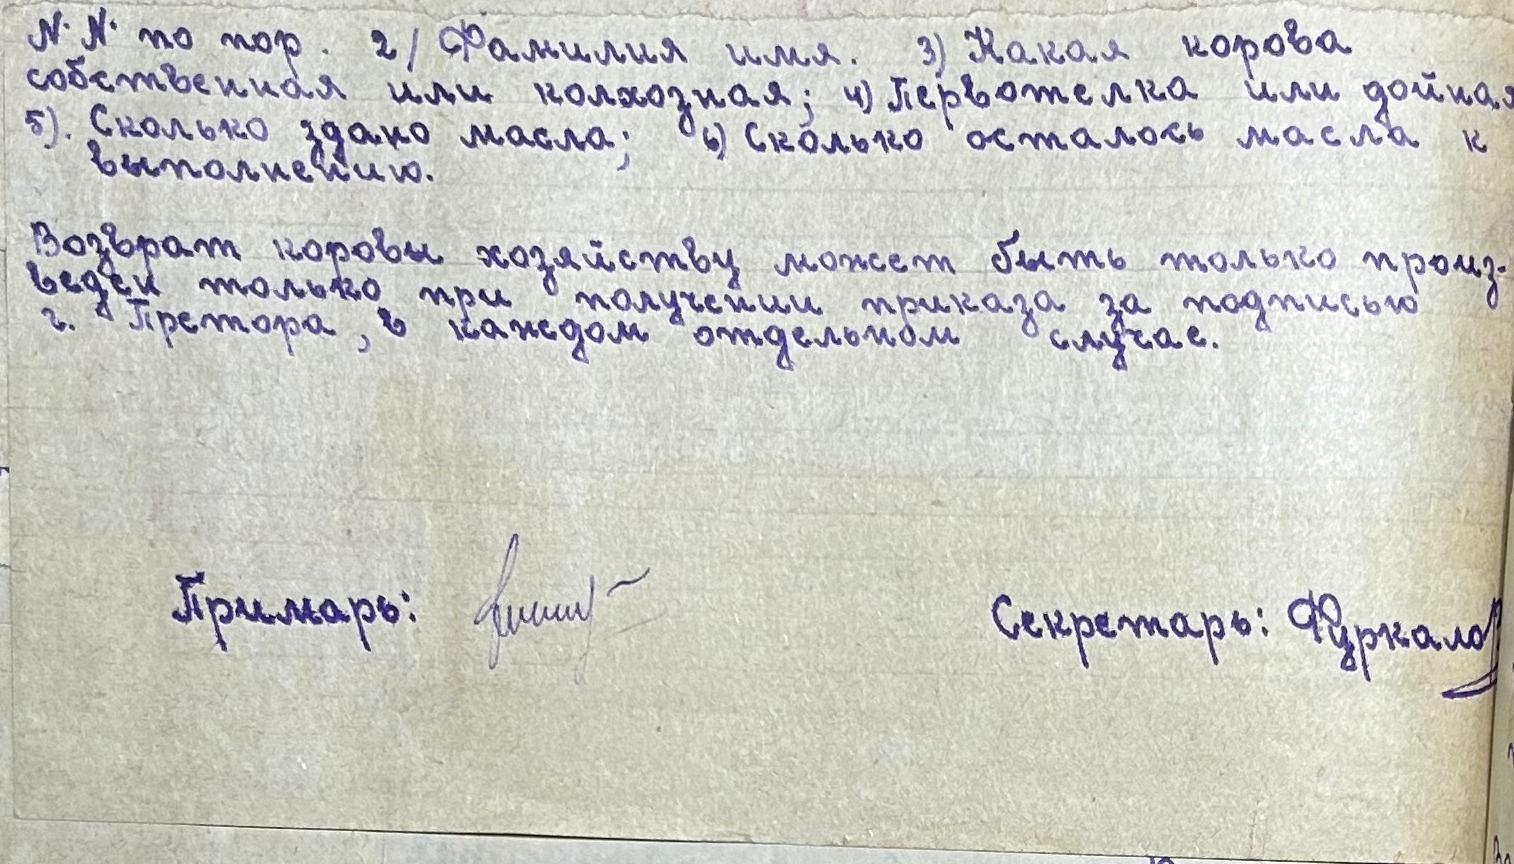 N. N. по пор. 2/ Фамилия имя. 3) Какая корова
собственная или колхозная; 4) Первотелка или дойная
5). Сколько здано масла; 6) Сколько осталось масла к
выполнению.
Возврат коровы хозяйству может быть только произ-
веден только при получении приказа за подписью
г. Претора, в каждом отдельном случае.
Примарь:
Секретарь: Фуркало